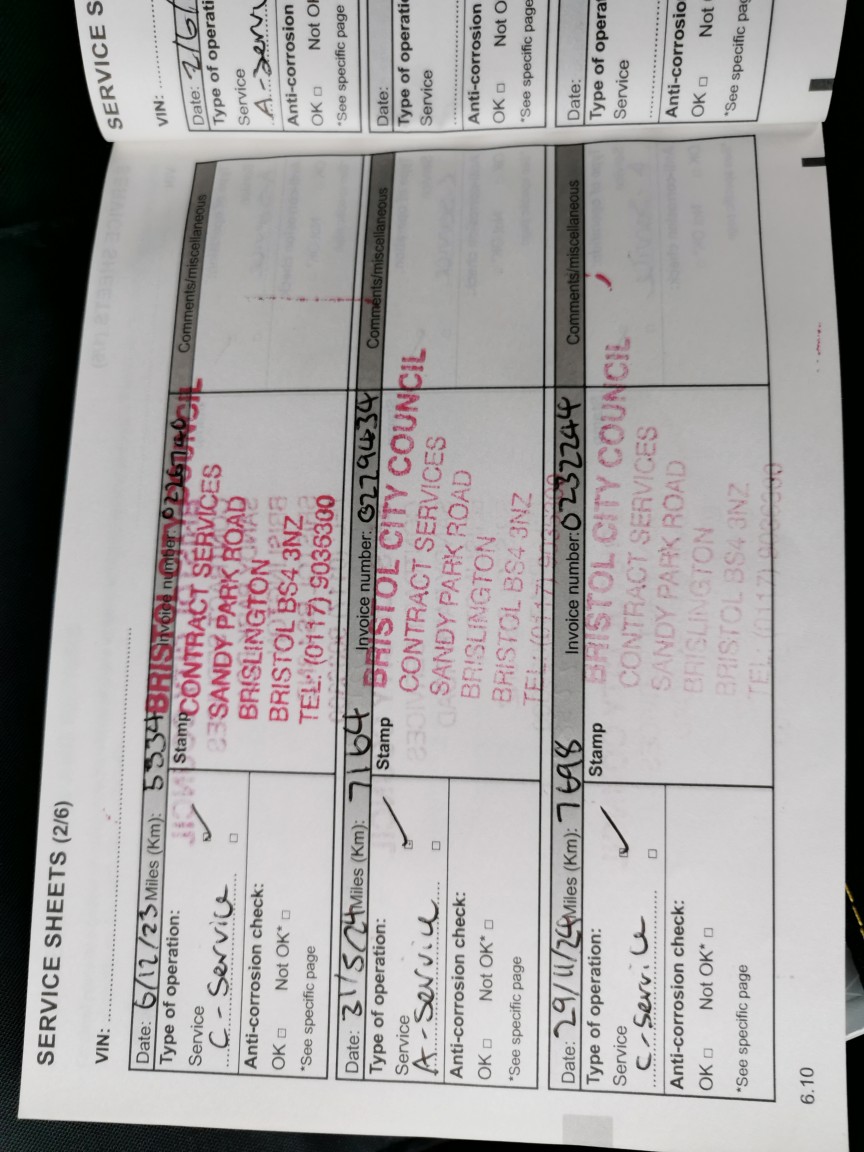 SERVICE SHEETS (2/6)
VIN:
Date: 6/12/23 Miles (Km): 5334 Invoice number: Comments/miscellaneous
Type of operation:
Service
C - Service
Anti-corrosion check:
OK □ Not OK* □
*See specific page
Stamp
BRISTOL CITY COUNCIL
CONTRACT SERVICES
SANDY PARK ROAD
BRISLINGTON
BRISTOL BS4 3NZ
TEL: (0117) 9036300
Date: 31/5/24 Miles (Km): 7164 Invoice number: 0229434 Comments/miscellaneous
Type of operation:
Service
A - Service
Anti-corrosion check:
OK □ Not OK* □
*See specific page
Stamp
BRISTOL CITY COUNCIL
CONTRACT SERVICES
SANDY PARK ROAD
BRISLINGTON
BRISTOL BS4 3NZ
TEL: (0117) 9036300
Date: 29/11/24 Miles (Km): 7698 Invoice number: 0232244 Comments/miscellaneous
Type of operation:
Service
C - Service
Anti-corrosion check:
OK □ Not OK* □
*See specific page
Stamp
BRISTOL CITY COUNCIL
CONTRACT SERVICES
SANDY PARK ROAD
BRISLINGTON
BRISTOL BS4 3NZ
TEL: (0117) 9036300
6.10
SERVICE S
VIN:
Date: 2/6/
Type of operati
Service
A - Serv
Anti-corrosion
OK □ Not O
*See specific page
Date:
Type of operati
Service
Anti-corrosion
OK □ Not O
*See specific page
Date:
Type of opera
Service
Anti-corrosio
OK □ Not
*See specific pag